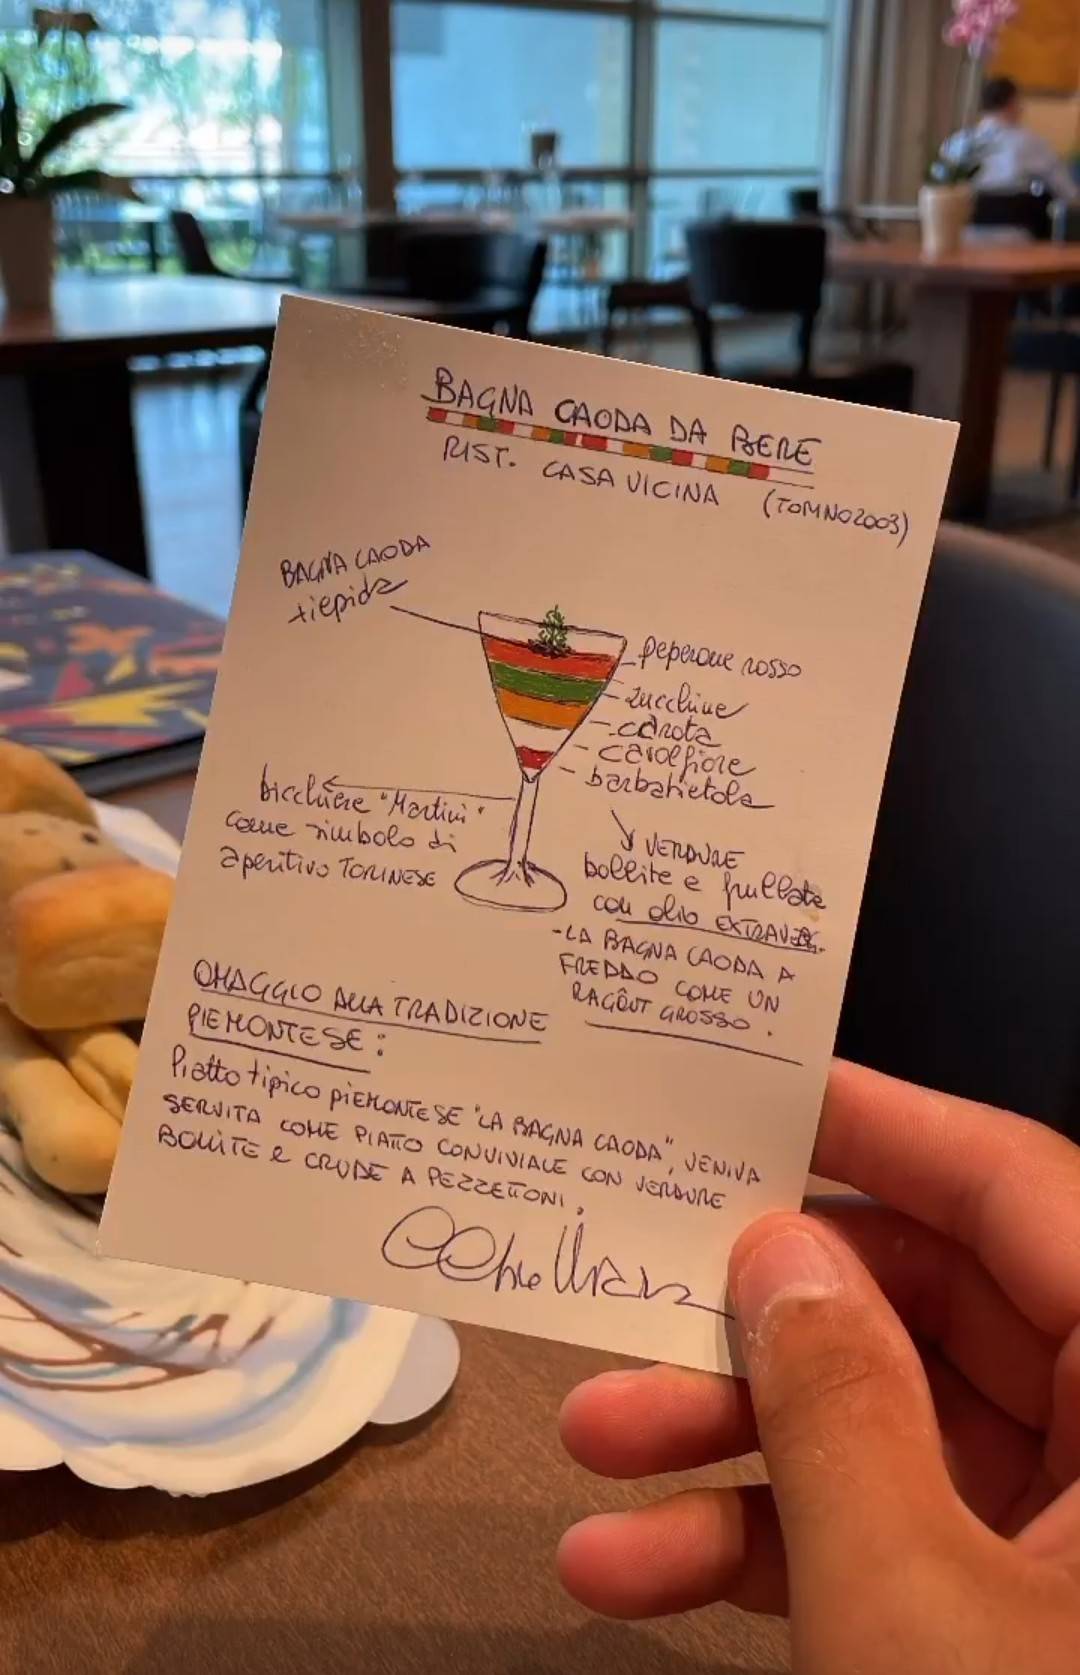 BAGNA CAODA DA BERE
RIST. CASA VICINA (TORINO 2003)
BAGNA CAODA
tiepida
peperone rosso
zucchine
carota
cavolfiore
barbabietola
bicchiere "Martini"
come simbolo di
aperitivo TORINESE
VERDURE
bollite e frullate
con olio EXTRAV.
-LA BAGNA CAODA A
FREDDO COME UN
RAGÔUT GROSSO.
OMAGGIO ALLA TRADIZIONE
PIEMONTESE:
Piatto tipico PIEMONTESE "LA BAGNA CAODA", VENIVA
SERVITA COME PIATTO CONVIVIALE CON VERDURE
BOLLITE e CRUDE A PEZZETTONI.